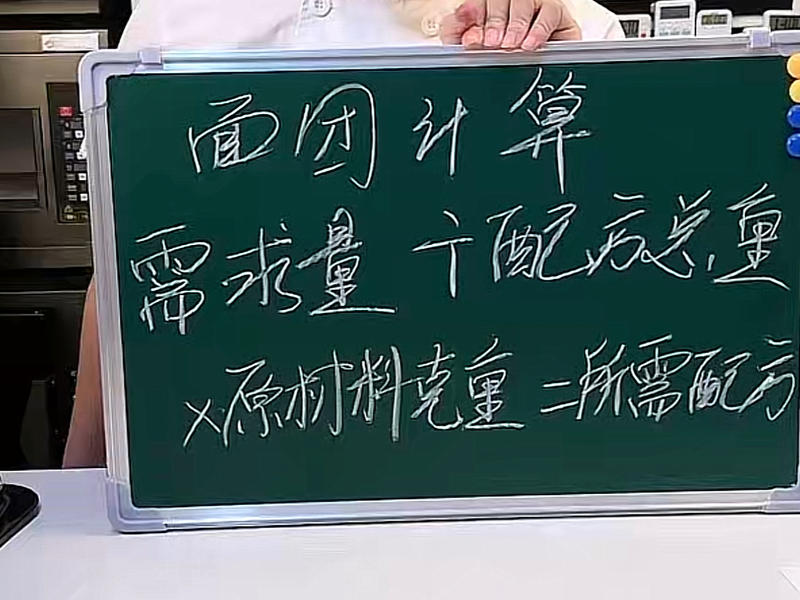 面团计算
需求量÷配方总重
×原材料克重=所需配方